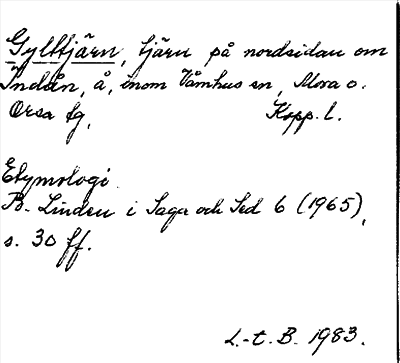 Gylltjärn, tjärn på nordsidan om
Indån, å, inom Våmhus sn, Mora o.
Orsa tg, Kopp. l.
Etymologi
B. Linden i Saga och Sed 6 (1965),
s. 30 ff.
L.-t. B. 1983.